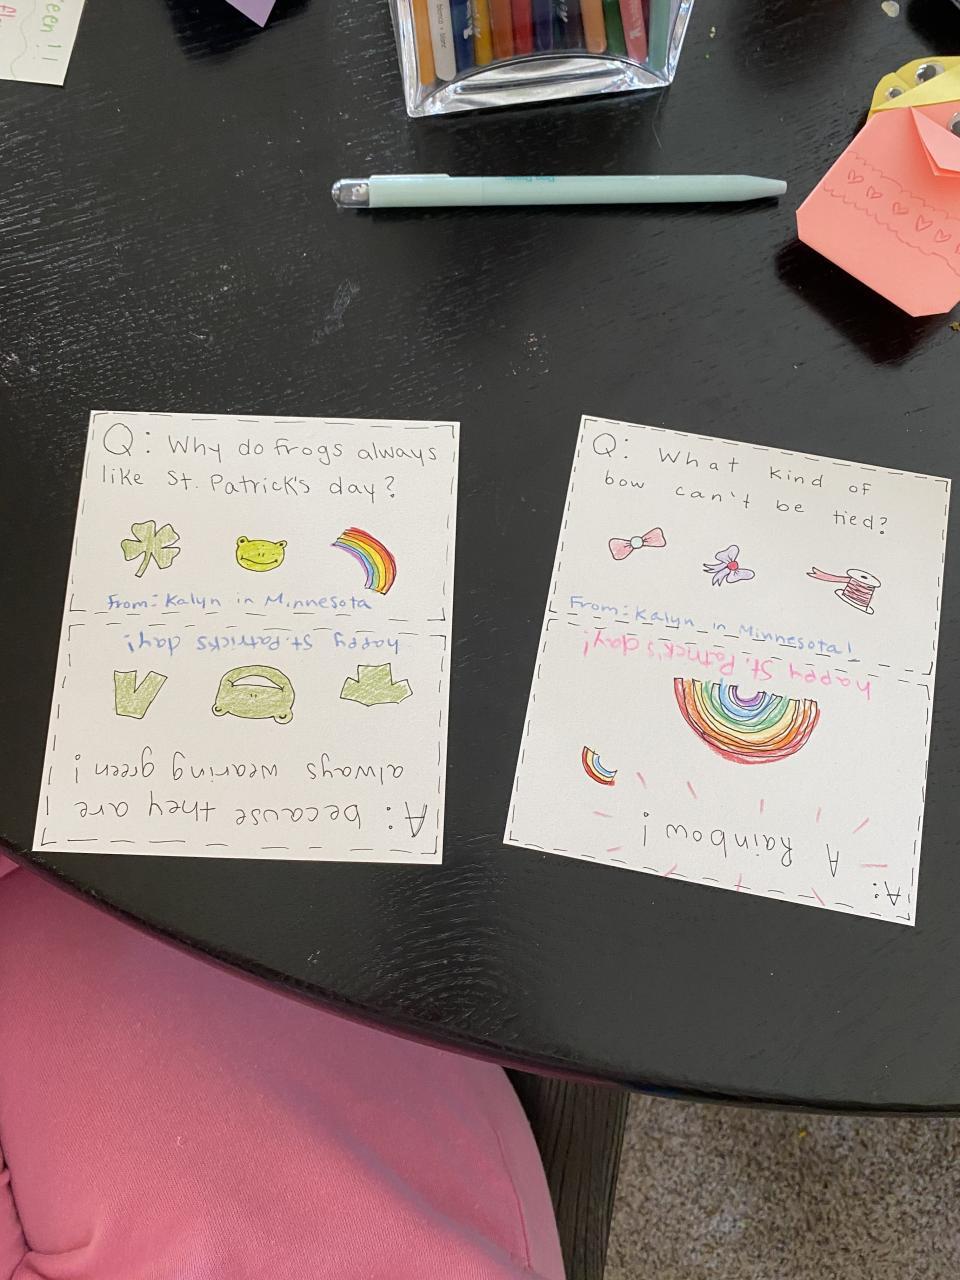 een!!
Q: Why do frogs always
like St. Patrick's day?
From: Kalyn in Minnesota
happy St. Patricks day!
A: because they are
always wearing green!
Q: What kind of
bow can't be tied?
From: Kalyn in Minnesota!
happy St. Patrick's day!
A:
A Rainbow!